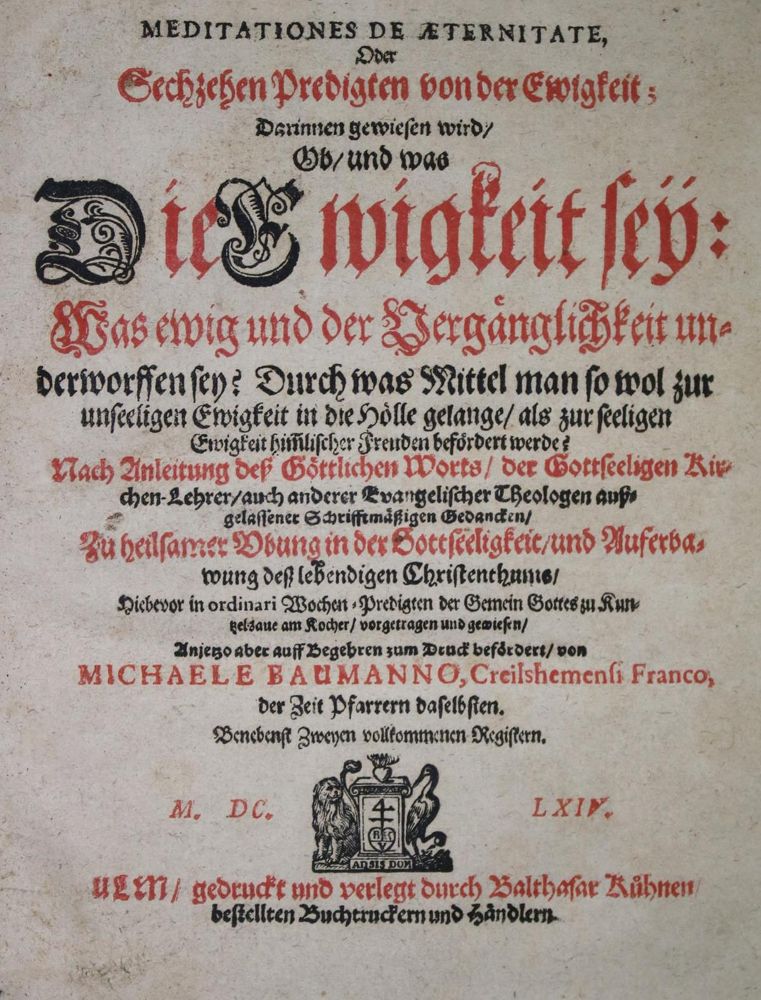 MEDITATIONES DE ÆTERNITATE,
Oder
Sechzehen Predigten von der Ewigkeit;
Darinnen gewiesen wird/
Ob/ und was
Die Ewigkeit seÿ:
Was ewig und der Vergånglichkeit un-
derworffen sey? Durch was Mittel man so wol zur
unseeligen Ewigkeit in die Hölle gelange/ als zur seeligen
Ewigkeit him̃lischer Freuden befördert werde?
Nach Anleitung deß Göttlichen Worts/ der Gottseeligen Kir-
chen-Lehrer/ auch anderer Evangelischer Theologen auß-
gelassener Schrifftmäßigen Gedancken/
Zu heilsamer Vbung in der Gottseeligkeit/ und Auferba-
wung deß lebendigen Christenthums/
Hiebevor in ordinari Wochen-Predigten der Gemein Gottes zu Kun-
tzelsaue am Kocher/ vorgetragen und gewiesen/
Anjetzo aber auff Begehren zum Druck befördert/ von
MICHAELE BAUMANNO, Creilshemensi Franco,
der Zeit Pfarrern daselbsten.
Benebenst Zweyen vollkommenen Registern.
M. DC. LXIV.
ANSIS DOM
ULM/ gedruckt und verlegt durch Balthasar Kůhnen/
bestellten Buchtruckern und Händlern.